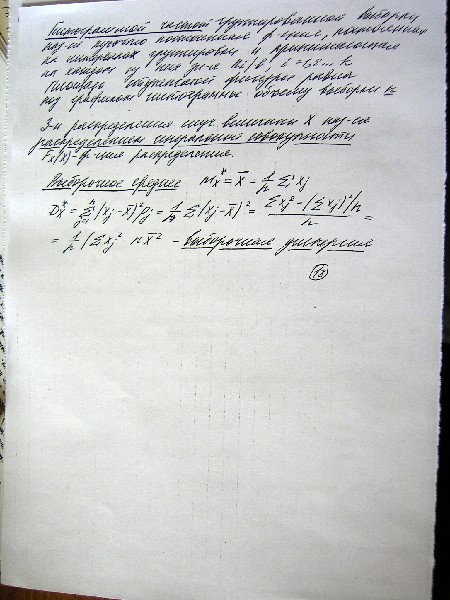 Гистограммой частот группированной выборки
наз-ся кусочно постоянная ф-ция, постоянная
на интервалах группировки и принимающая
на каждом из них зн-я ni/b, i=1,2... k
Площадь ступенчатой фигуры равна
под графиком гистограммы объему выборки n
З-н распределения случ. величины X наз-ся
распределением генеральной совокупности
Fx(x)-ф-ция распределения.
Выборочное среднее Mx* = X̄ = 1/n Σ xj
Dx* = Σ (xj-x̄)² pj = 1/n Σ (xj-x̄)² = (Σxj² - (Σxj)²/n)/n =
= 1/n (Σxj² nx̄² - выборочная дисперсия